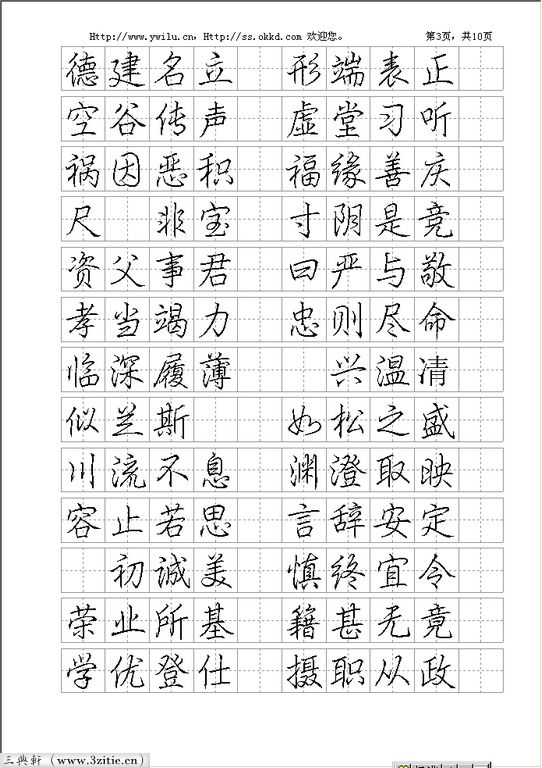 Http://www.ywilu.cn, Http://ss.okkd.com 欢迎您。 第3页，共10页
德建名立 形端表正
空谷传声 虚堂习听
祸因恶积 福缘善庆
尺 非宝 寸阴是竞
资父事君 曰严与敬
孝当竭力 忠则尽命
临深履薄 兴温凊
似兰斯 如松之盛
川流不息 渊澄取映
容止若思 言辞安定
初诚美 慎终宜令
荣业所基 籍甚无竟
学优登仕 摄职从政
三典轩（www.3zitie.cn）